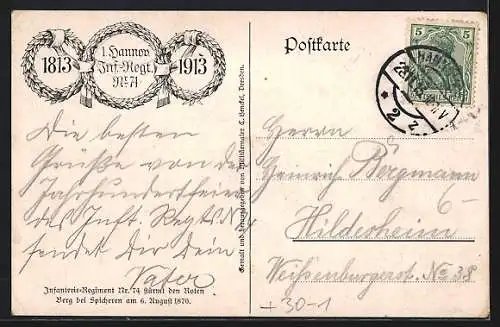 1813
1. Hannov.
Inf.-Regt.
No 74
1913
Postkarte
5
HANNOVER
* 2 z.
Die besten
Grüße von der
Jahrhundertfeier
des Inft. Regts No 74
sendet Dir Dein
Vater
Infanterie-Regiment Nr. 74 stürmt den Roten
Berg bei Spicheren am 6. August 1870.
Gemalt und herausgegeben von Militärmaler C. Henckel, Dresden.
Herrn
Heinrich Bergmann
Hildesheim
Weißenburgerst. No 38
+30-1